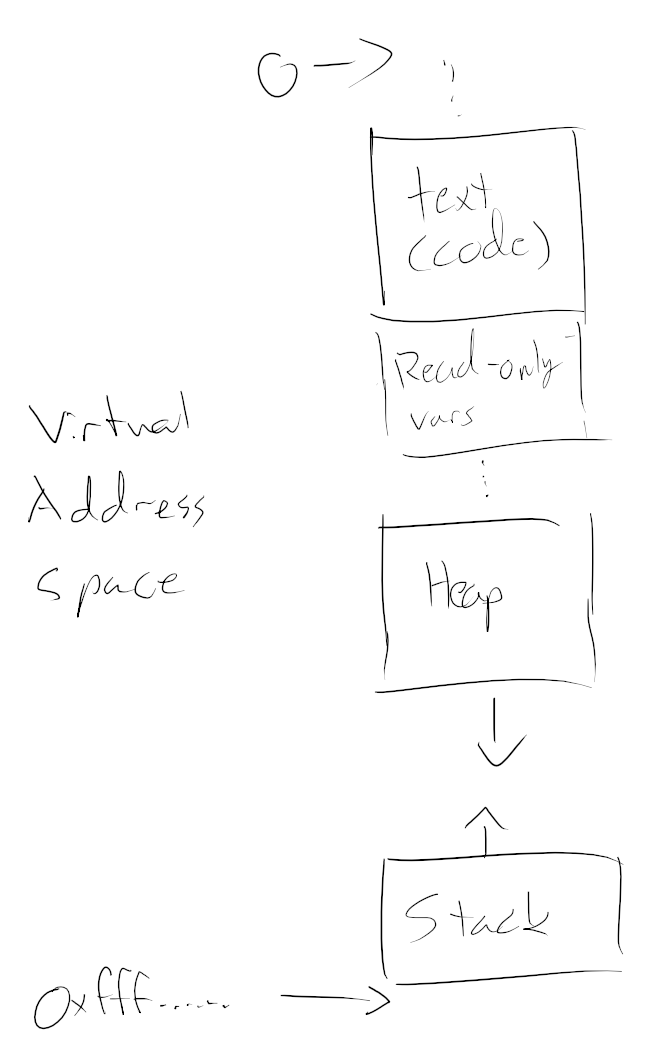 0 →
text
(code)
Read-only
vars
Virtual
Address
Space
Heap
Stack
0xfff...... →